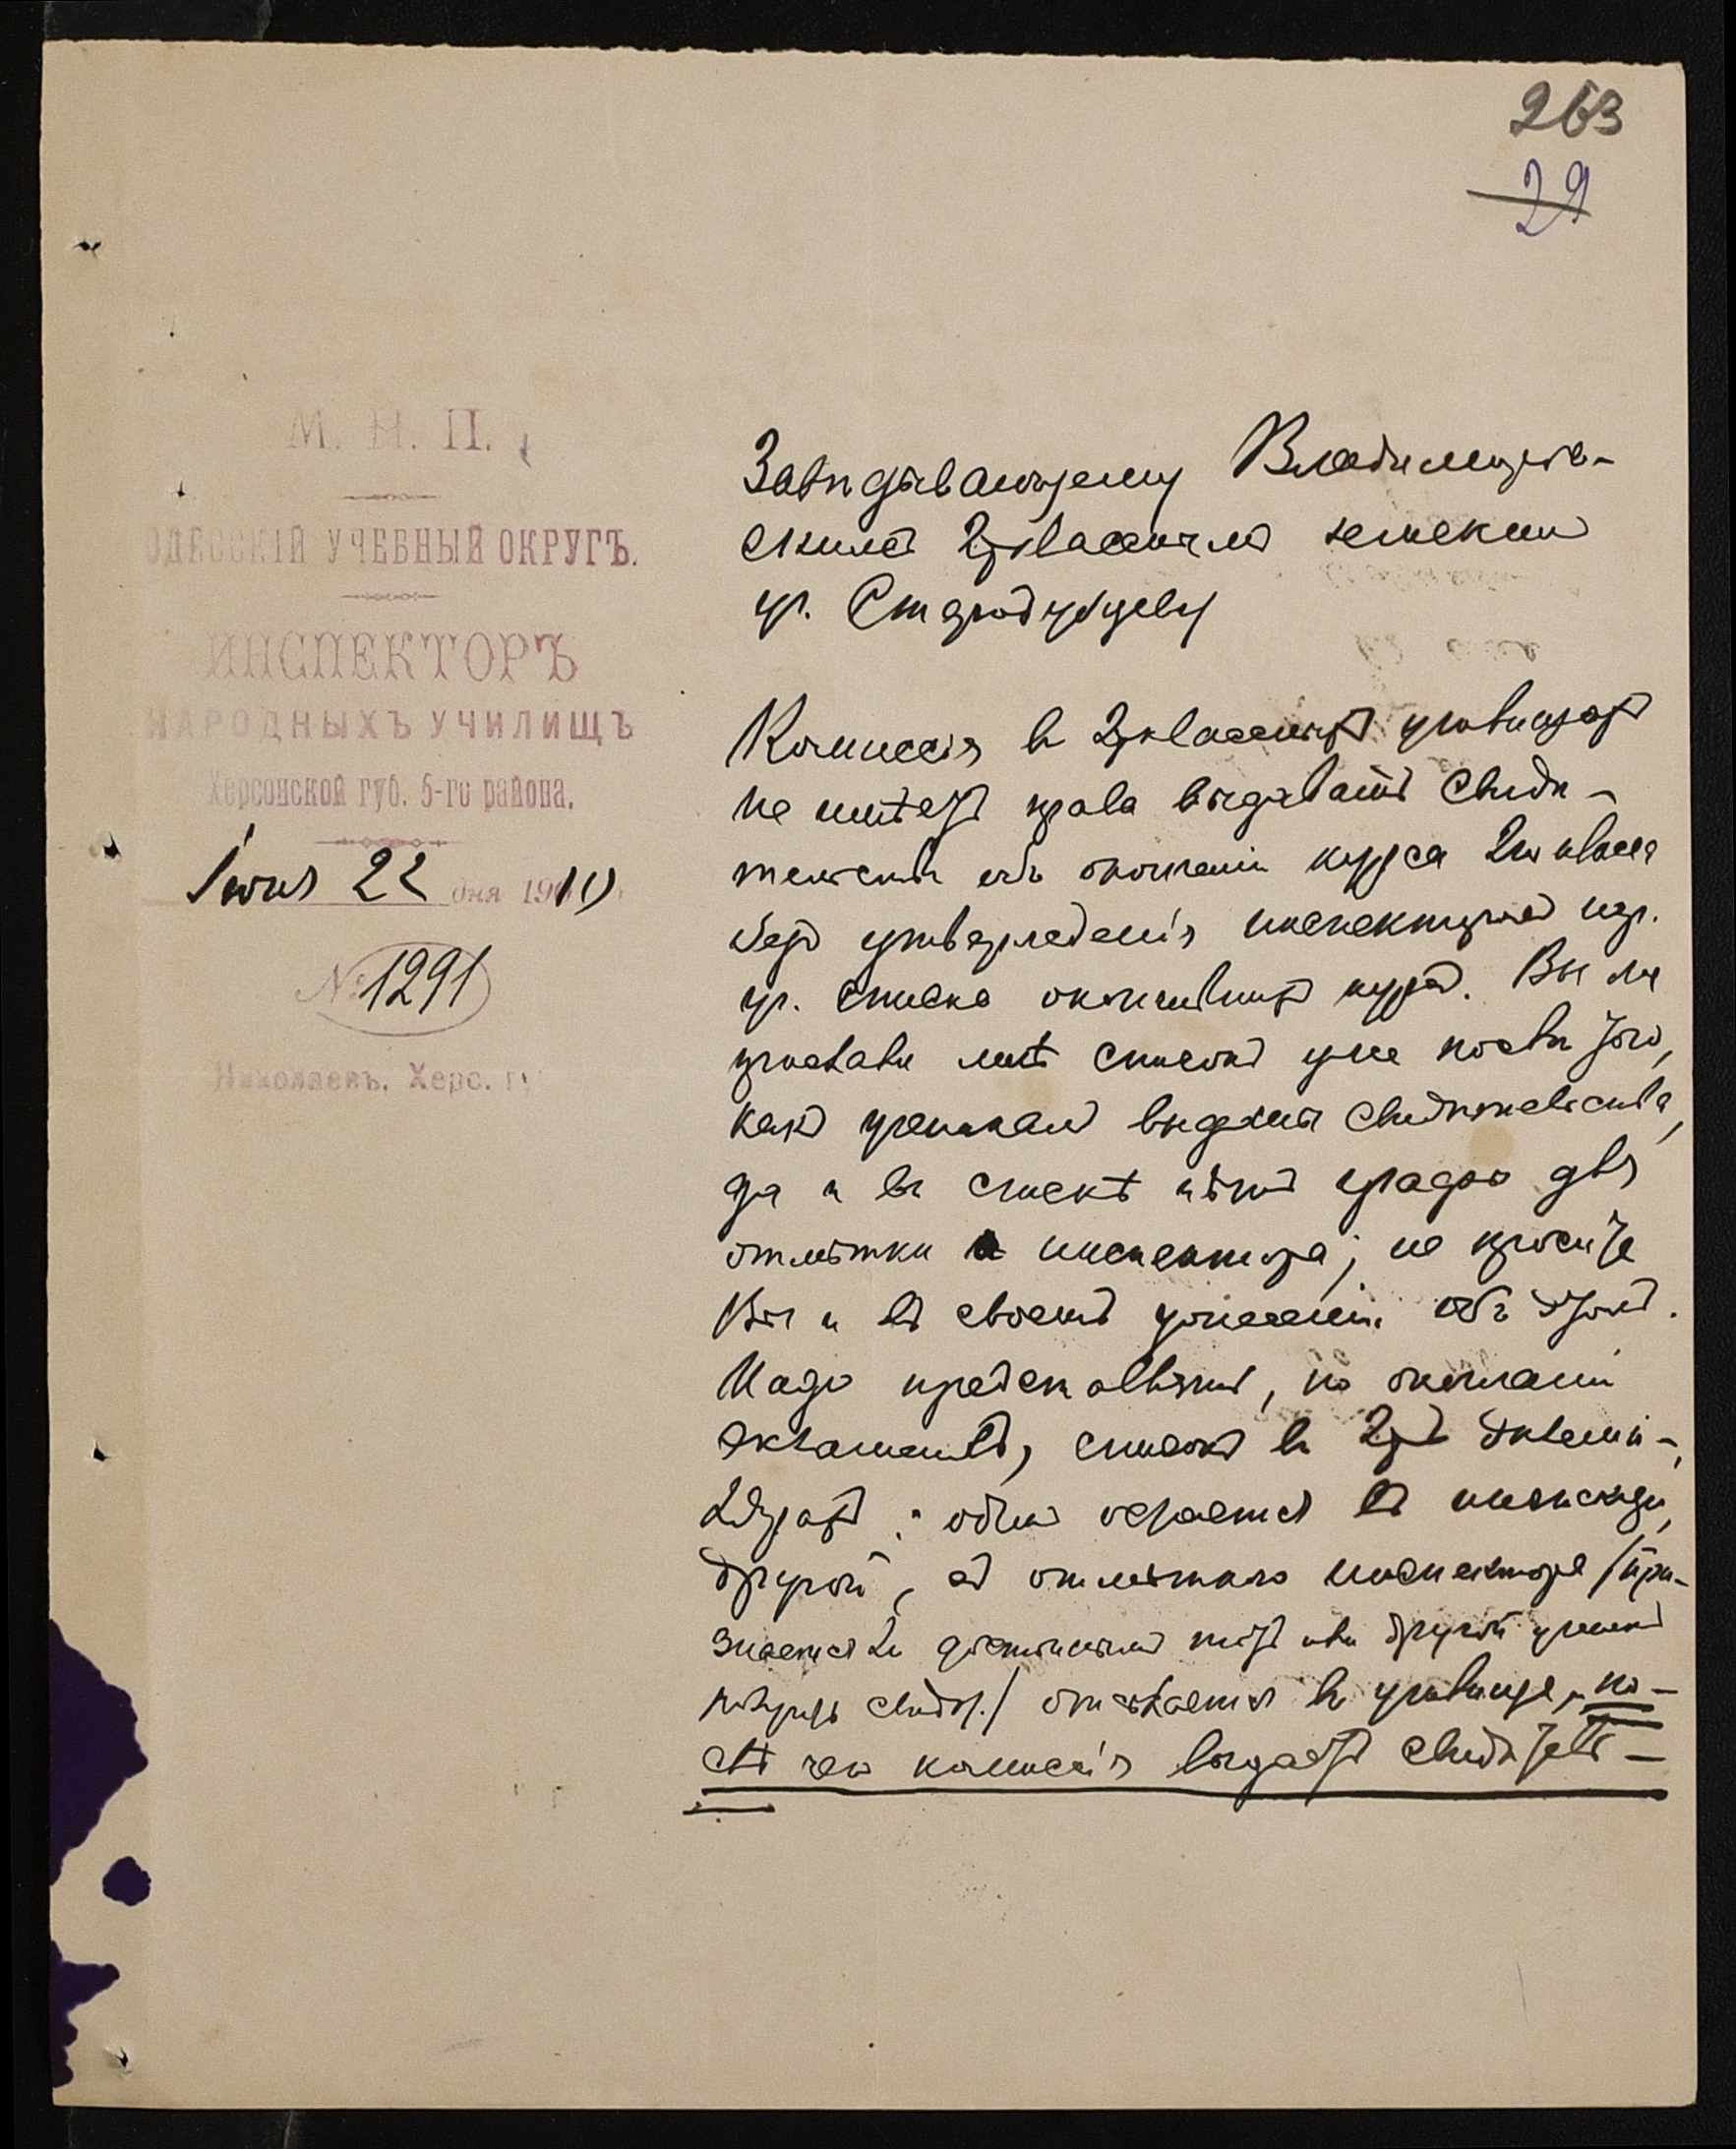 263
29
М. Н. П.
ОДЕССКІЙ УЧЕБНЫЙ ОКРУГЪ.
ИНСПЕКТОРЪ
НАРОДНЫХЪ УЧИЛИЩЪ
Херсонской губ. 5-го района.
Іюня 22 дня 1910
№ 1291
Николаевъ, Херс. г
Завѣдывающему Владимиров-
скимъ 2хкласснымъ земскимъ
уч. Стародубцеву
Комиссія въ 2хклассныхъ училищахъ
не имѣетъ права выдавать свидѣ-
тельства объ окончаніи курса 2го класса
безъ утвержденія инспекторомъ нар.
уч. списка окончившихъ курсъ. Вы же
прислали мнѣ списокъ уже послѣ того,
какъ ученикамъ выданы свидѣтельства,
да и въ спискѣ нѣтъ графы для
отмѣтки инспектора; не просите
Вы и въ своемъ донесеніи объ этомъ.
Надо представлять, по окончаніи
экзаменовъ, списокъ въ 2хъ экземп-
лярахъ: одинъ остается въ инспекціи,
другой, съ отмѣткою инспектора /при-
знается ли достойнымъ тотъ или другой ученикъ
получить свидѣт./ отсылается въ училище, по-
слѣ чего комиссія выдаетъ свидѣтель-